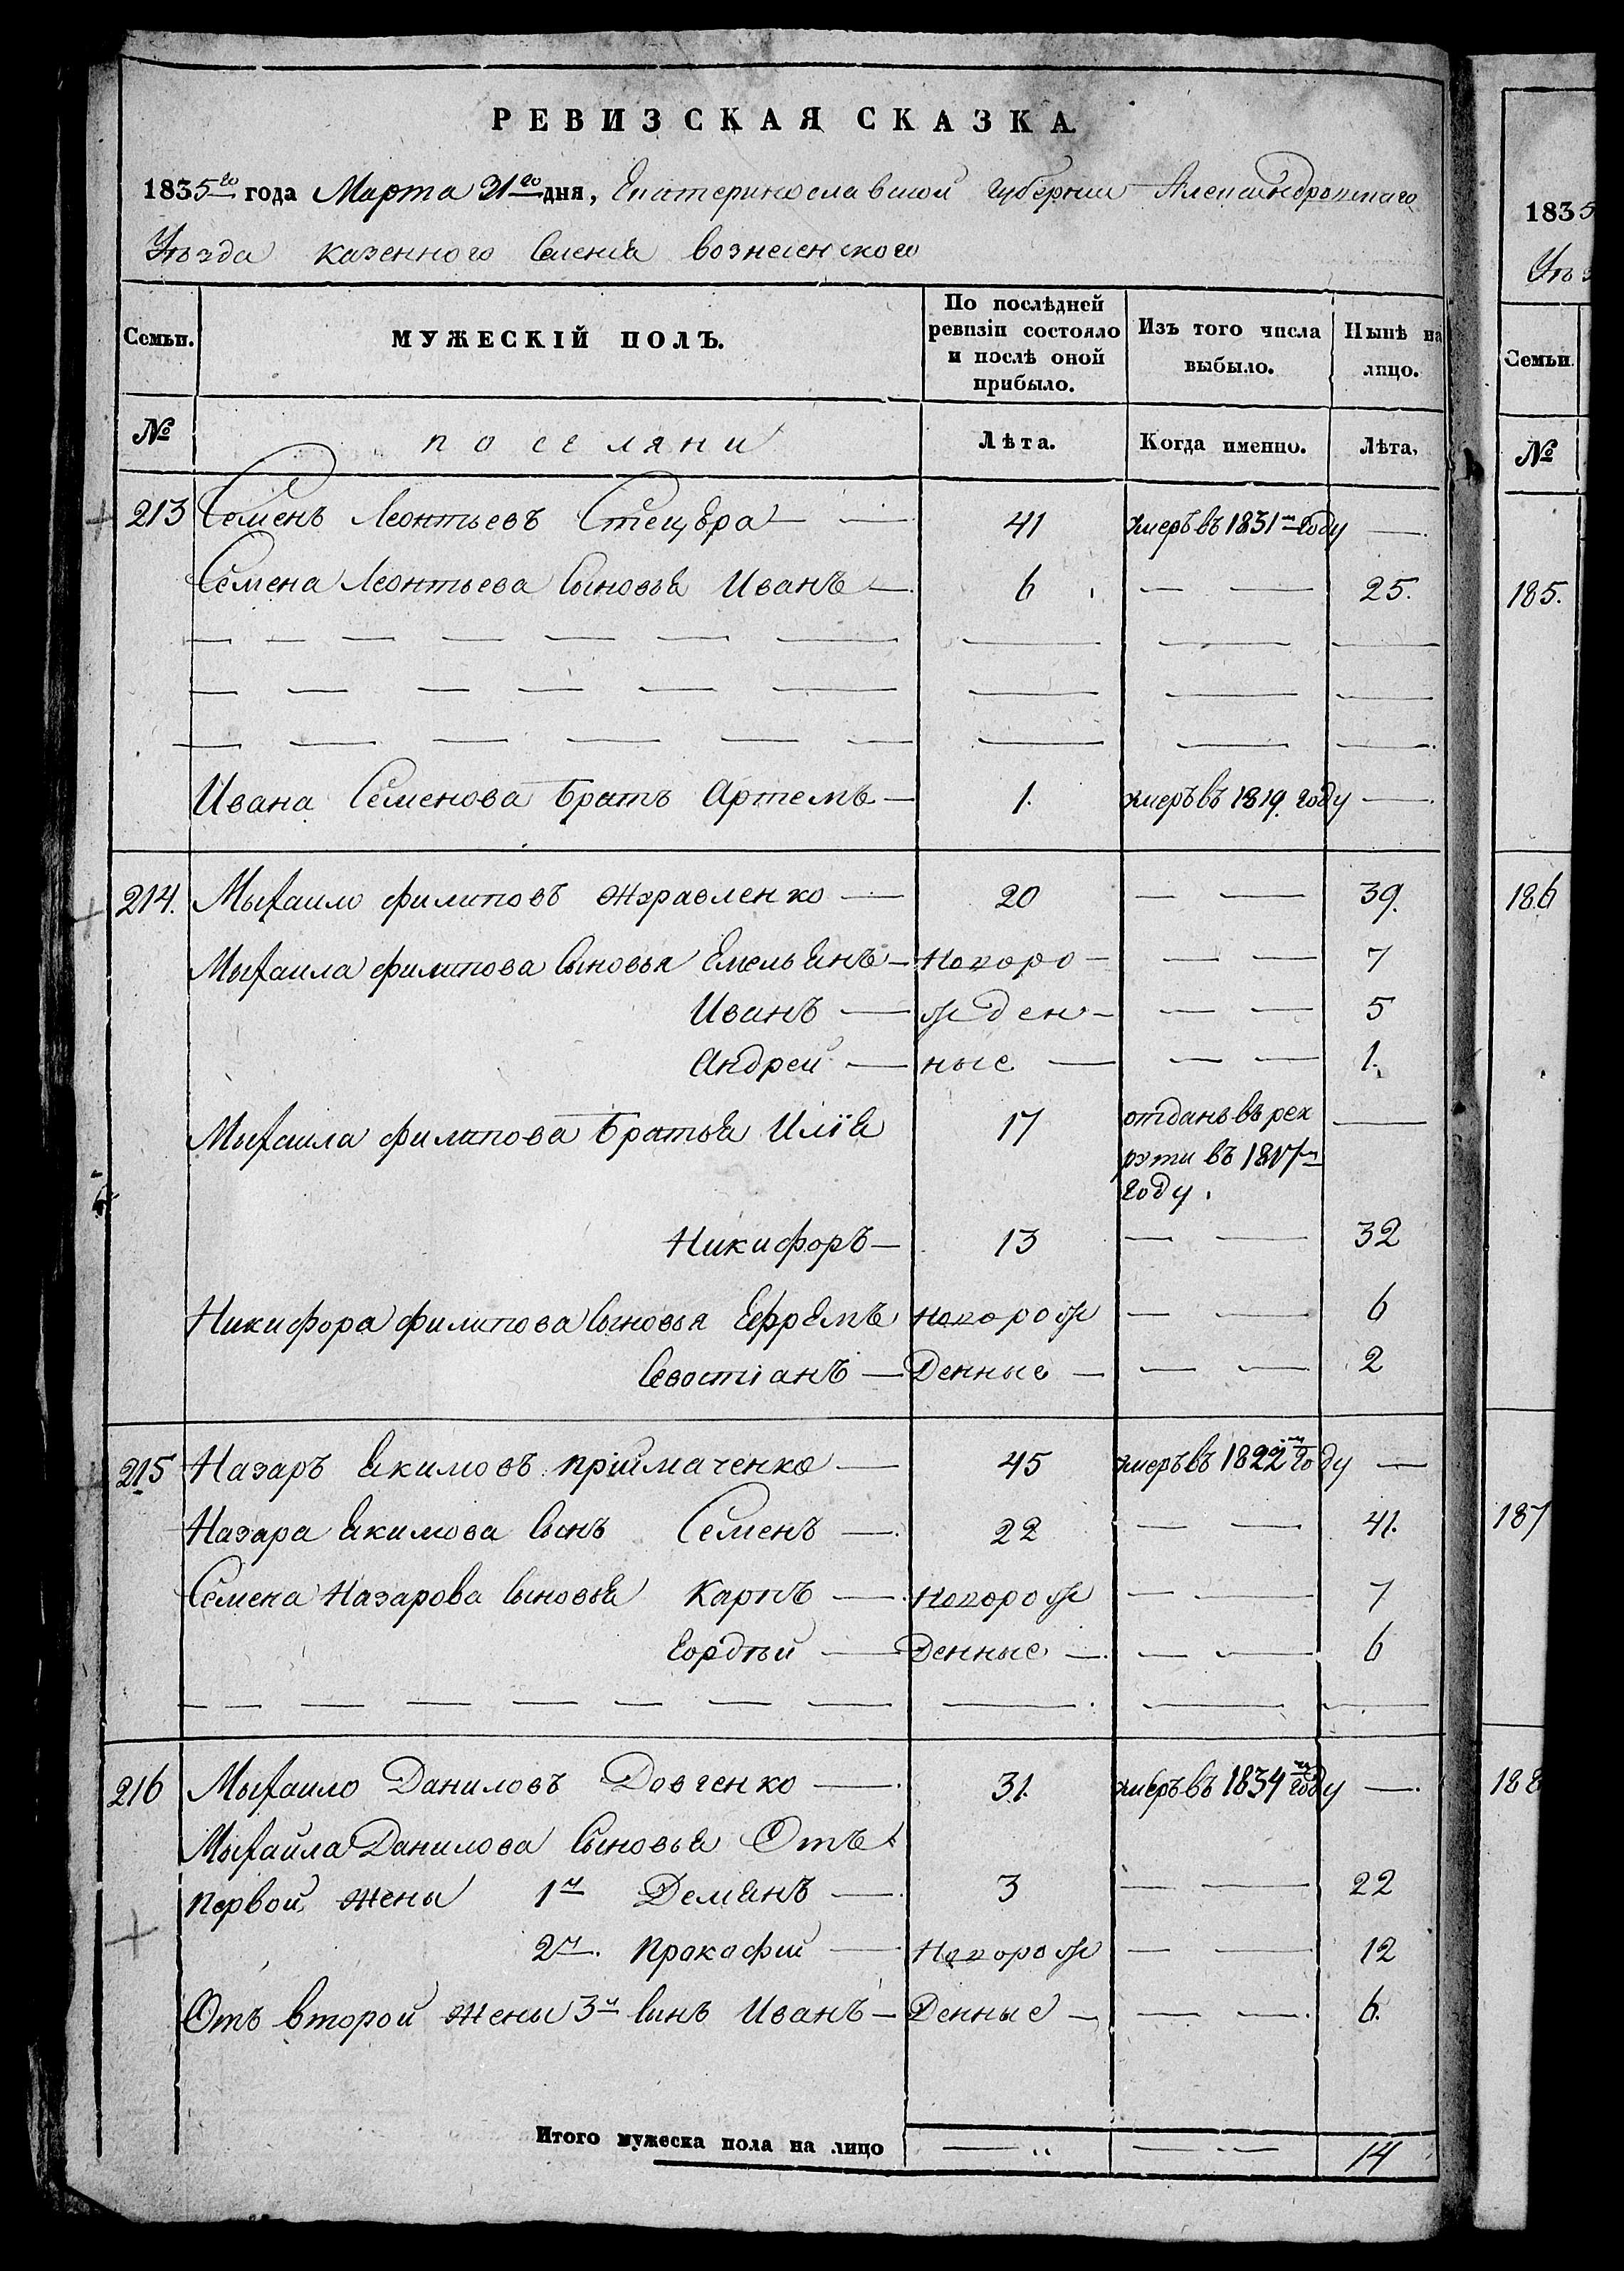 РЕВИЗСКАЯ СКАЗКА.
1835го года Марта 31го дня, Екатеринославской губернии Александровского
Уъзда казенного Селенія вознесенского
Семьи. МУЖЕСКІЙ ПОЛЪ. По послѣдней ревизіи состояло и послѣ оной прибыло. Изъ того числа выбыло. Нынѣ на лицо.
№ поселяни Лѣта. Когда именно. Лѣта.
213 Семенъ Леонтьевъ Стецура — 41 умеръ въ 1831м году —
Семена Леонтьева Сыновья Иванъ — 6 — — 25.
Ивана Семенова Братъ Артемъ — 1. умеръ въ 1819. году —
214. Михаило филиповъ журавленко — 20 — — 39.
Михаила филипова Сыновья Емельянъ — Новоро — — 7
Иванъ — жден — — 5
Андрей — ные — — 1.
Михаила филипова Братья Илія 17 отданъ въ рек —
рути въ 1817м
году.
Никифоръ — 13 — — 32
Никифора филипова Сыновья Ефремъ новорож — — 6
Севостіанъ — Денные — — 2
215 Назаръ Екимовъ пріймаченко — 45 умеръ въ 1822м году —
Назара Екимова Сынъ Семенъ — 22 — — 41.
Семена Назарова Сыновья Карпъ — Новорож — — 7
Гордѣй — Денные — — 6
216 Михаило Даниловъ Довгенко — 31. умеръ въ 1834м году —
Михайла Данилова Сыновья Отъ
первой жены 1й Демянъ — 3 — — 22
2й. Прокофій — Новорож — — 12
Отъ второй жены 3й Сынъ Иванъ — Денные — — 6.
Итого мужеска пола на лицо — — 14
1835
Уъз
Семьи.
№
185.
186
187
188